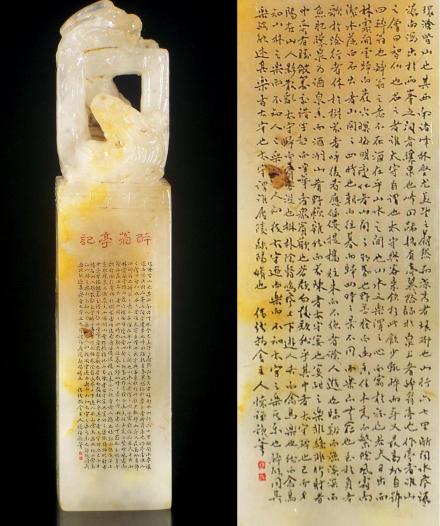 醉翁亭記
環滁皆山也其西南諸峰林壑尤美望之蔚然而深秀者瑯琊也山行六七里漸聞水聲潺
潺而瀉出於兩峰之間者釀泉也峰回路轉有亭翼然臨於泉上者醉翁亭也作亭者誰山
之僧曰智仙也名之者誰太守自謂也太守與客來飲於此飲少輒醉而年又最高故自號
曰醉翁也醉翁之意不在酒在乎山水之間也山水之樂得之心而寓之酒也若夫日出而
林霏開雲歸而巖穴暝晦明變化者山間之朝暮也野芳發而幽香佳木秀而繁陰風霜高
潔水落而石出者山間之四時也朝而往暮而歸四時之景不同而樂亦無窮也至於負者
歌於塗行者休於樹前者呼後者應傴僂提攜往來而不絕者滁人遊也臨谿而漁谿深而
魚肥釀泉為酒泉香而酒洌山肴野蔌雜然而前陳者太守宴也宴酣之樂非絲非竹射者
中弈者勝觥籌交錯坐起而諠譁者衆賓懽也蒼顏白髮頹然乎其中者太守醉也已而夕
陽在山人影散亂太守歸而賓客從也樹林陰翳鳴聲上下遊人去而禽鳥樂也然而禽鳥
知山林之樂而不知人之樂人知從太守遊而樂而不知太守之樂其樂也醉能同其
樂醒能述其樂者太守也太守謂誰廬陵歐陽脩也